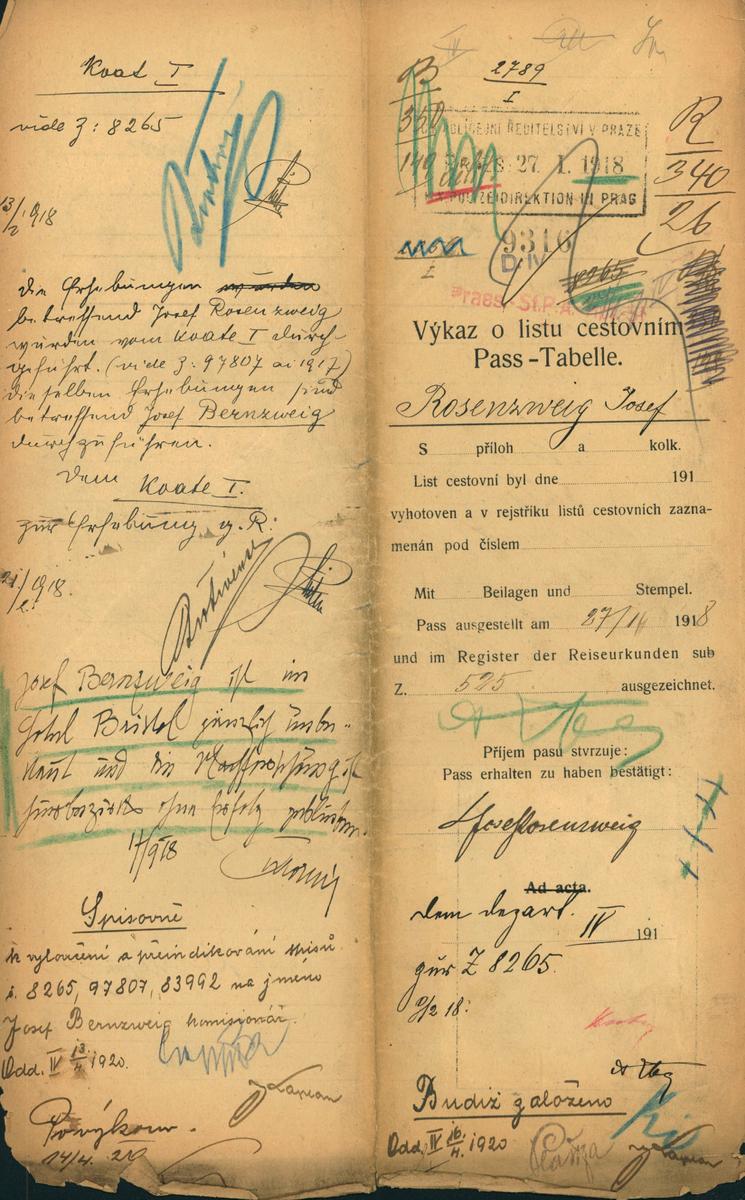 Koat I
vide Z: 8265
13/2 1918
die Erhebungen wurden
betreffend Josef Rosenzweig
wurden vom Koate I durch-
geführt. (vide Z: 97807 ai 1917)
dieselben Erhebungen sind
betreffend Josef Bernzweig
durchzuführen.
Dem Koate I.
zur Erhebung g. R:
1918.
Josef Bernzweig ist im
Hotel Bristol gänzlich unbe-
kannt und die Nachforschung ist
ohne Erfolg geblieben.
Spisovně
k vyloučení a přeindikování spisů
č. 8265, 97807, 83992 na jméno
Josef Bernzweig komisionář.
Odd. IV 13/4 1920.
Po výkonu.
14/4. 20
2789
I
B
R
340
26
POLICEJNÍ ŘEDITELSTVÍ V PRAZE
27. I. 1918
K.K. POLIZEIDIREKTION IN PRAG
9316
D.IV
I
8265
Praes-St.P.A.
Výkaz o listu cestovním
Pass-Tabelle.
Rosenzweig Josef
S příloh a kolk.
List cestovní byl dne 191
vyhotoven a v rejstříku listů cestovních zazna-
menán pod číslem
Mit Beilagen und Stempel.
Pass ausgestellt am 27/ 1918
und im Register der Reiseurkunden sub
Z. 525 ausgezeichnet.
Příjem pasu stvrzuje:
Pass erhalten zu haben bestätigt:
Josef Rosenzweig
Ad acta.
Dem depart. IV 191
zur Z 8265.
/2 18:
Budiž založeno
Odd. IV 16/4. 1920